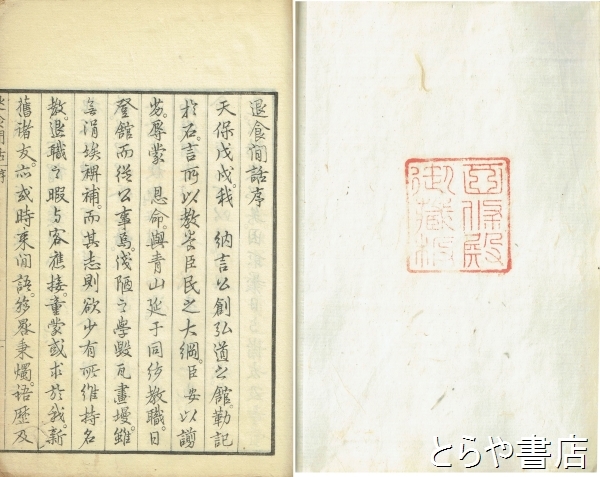 退食間話序
天保戊戌我　納言公創弘道之館勒記
於石言所以教養臣民之大綱。臣安以謭
劣。辱蒙　恩命。與青山延于同紗教職。日
登館而從公事焉。伐陋之學毀瓦畫墁。雖
無涓埃裨補。而其志則欲少有所維持名
教。退職之暇与客應接。童蒙或求於我。新
舊諸友。亦或時來間語。移晷秉燭。語歷及
御藏板
とらや書店